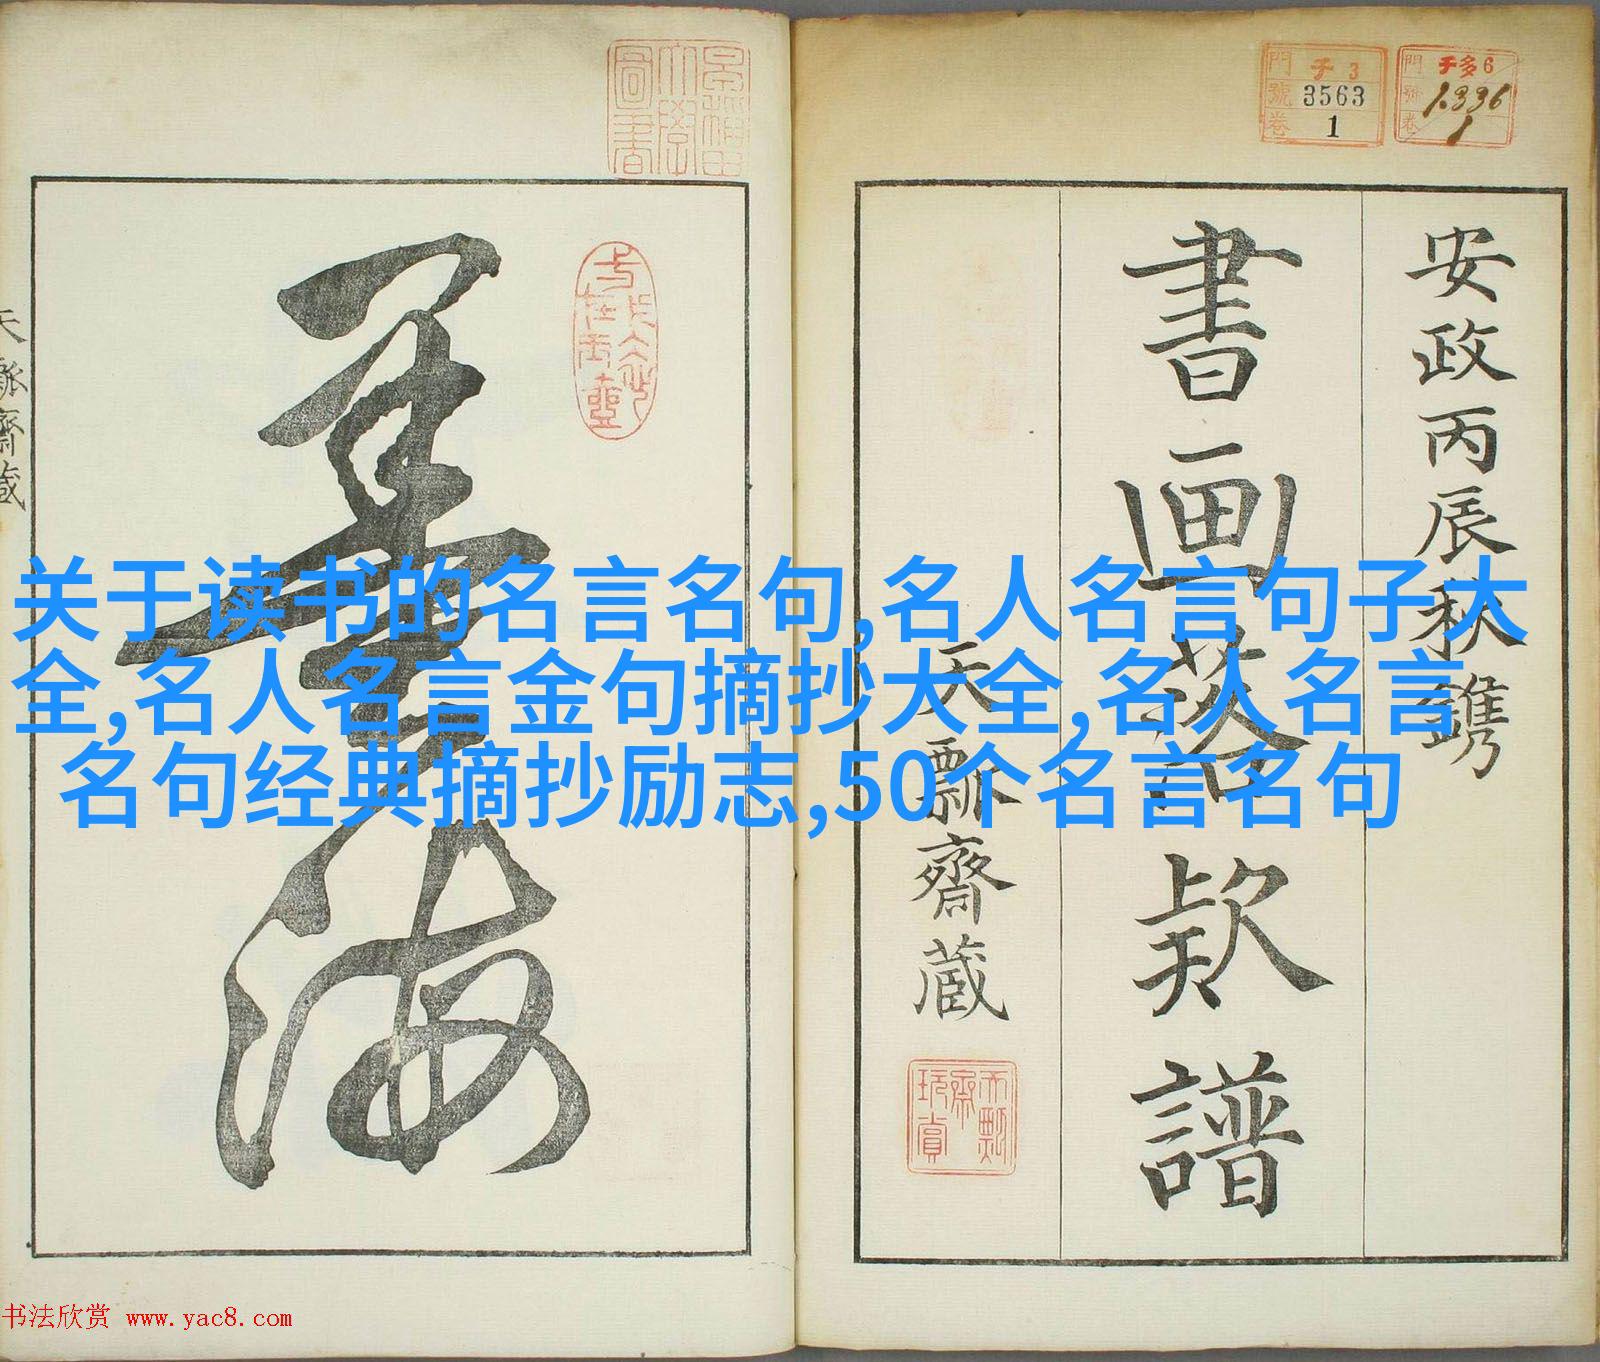 关于读书的名言名句,名人名言句子大
全,名人名言金句摘抄大全,名人名言
名句经典摘抄励志,50个名言名句
門 チ 3
號 3563
卷 1
安政丙辰秋鐫
書画落欵譜
天瓢齋蔵
早稲田
大學
圖書
海
书法欣赏 www.yac8.com